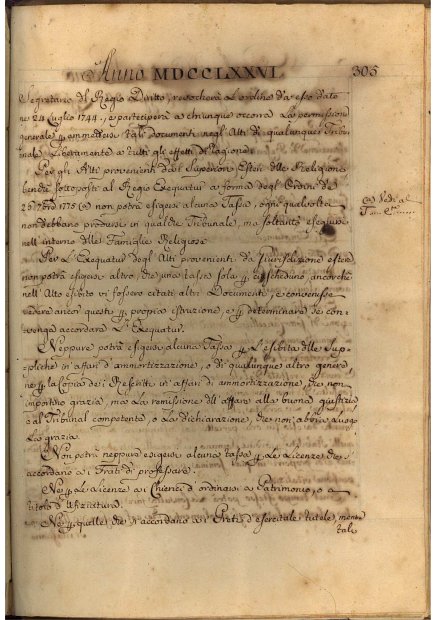 Anno MDCCLXXVI. 305
Segretario del Regio Diritto, revocherà l'ordine da esso dato
ne 24 Luglio 1744., e parteciperà a chiunque occorra la permissione
generale di ammettere tali documenti negl'Atti di qualunque Tribu
nale liberamente a tutti gli effetti di ragione.
Per gli Atti provenienti dai Superiori Esteri delle Religioni
benchè sottoposte al Regio Exequatur a forma degl'Ordini de
26 1775 (a) non potrà esigersi alcuna Tassa, ogni qual volta
non debbano prodursi in qualche Tribunale, ma soltanto eseguirsi
nell'interno delle Famiglie Religiose
(a) Vedi al
T.... C......
Per l'Exequatur degli Atti provenienti da Giurisdizione estera
non potrà esigersi altro, che una tassa sola p ciascheduno ancorche
nell'Atto esibito vi fossero citati altri Documenti, e convenisse
vedere ancor questi p propria istruzione, e p determinare se con
venga accordare l'Exequatur.
Neppure potrà esigersi alcuna Tassa p l'esibita delle Sup
pliche in affari d'ammortizzazione, o di qualunque altro genere,
ne p la copia dei Rescritti in affari di ammortizzazione, che non
importino grazia, ma la remissione dell'affare alla buona giustizia
e al Tribunal competente, o la dichiarazione, che non abbia luogo
la grazia.
Non potrà neppure esigersi alcuna tassa p le licenze che si
accordano ai Frati di professare.
Ne p le licenze ai Chierici d'ordinarsi a Patrimonio, o a
titolo d'Ufiziatura.
Ne p quelle, che si accordano ai Preti d'esercitare tutele, men
tali